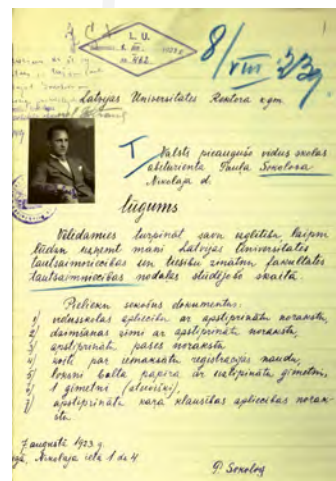 L. U.
192 g.
№ 462
8/VIII 23g.
Latvijas Universitates Rektora kgm.
I Valsts pieaugušo vidus skolas
abiturienta Paula Sokolova
Nikolaja d.
lūgums
Vēlēdamies turpināt savu izglītību laipni
lūdzu uzņemt mani Latvijas Universitātes
tautsaimniecības un tiesību zinātņu fakultātes
tautsaimniecības nodaļas studējošo skaitā.
Pielieku sekošus dokumentus:
1) vidusskolas apliecību ar apstiprinātu norakstu,
2) dzimšanas zīmi ar apstiprinātu norakstu,
3) apstiprinātu pases norakstu
4) kvīti par iemaksātu reģistrācijas naudu,
5) loksni balta papīra ar uzlīpinātu ģīmetni,
6) 1 ģīmetni
7) apstiprinātu kara klausības apliecības norak-
stu
7 augustā 1923 g.
Nikolaja ielā 1 dz 4.
P. Sokolov